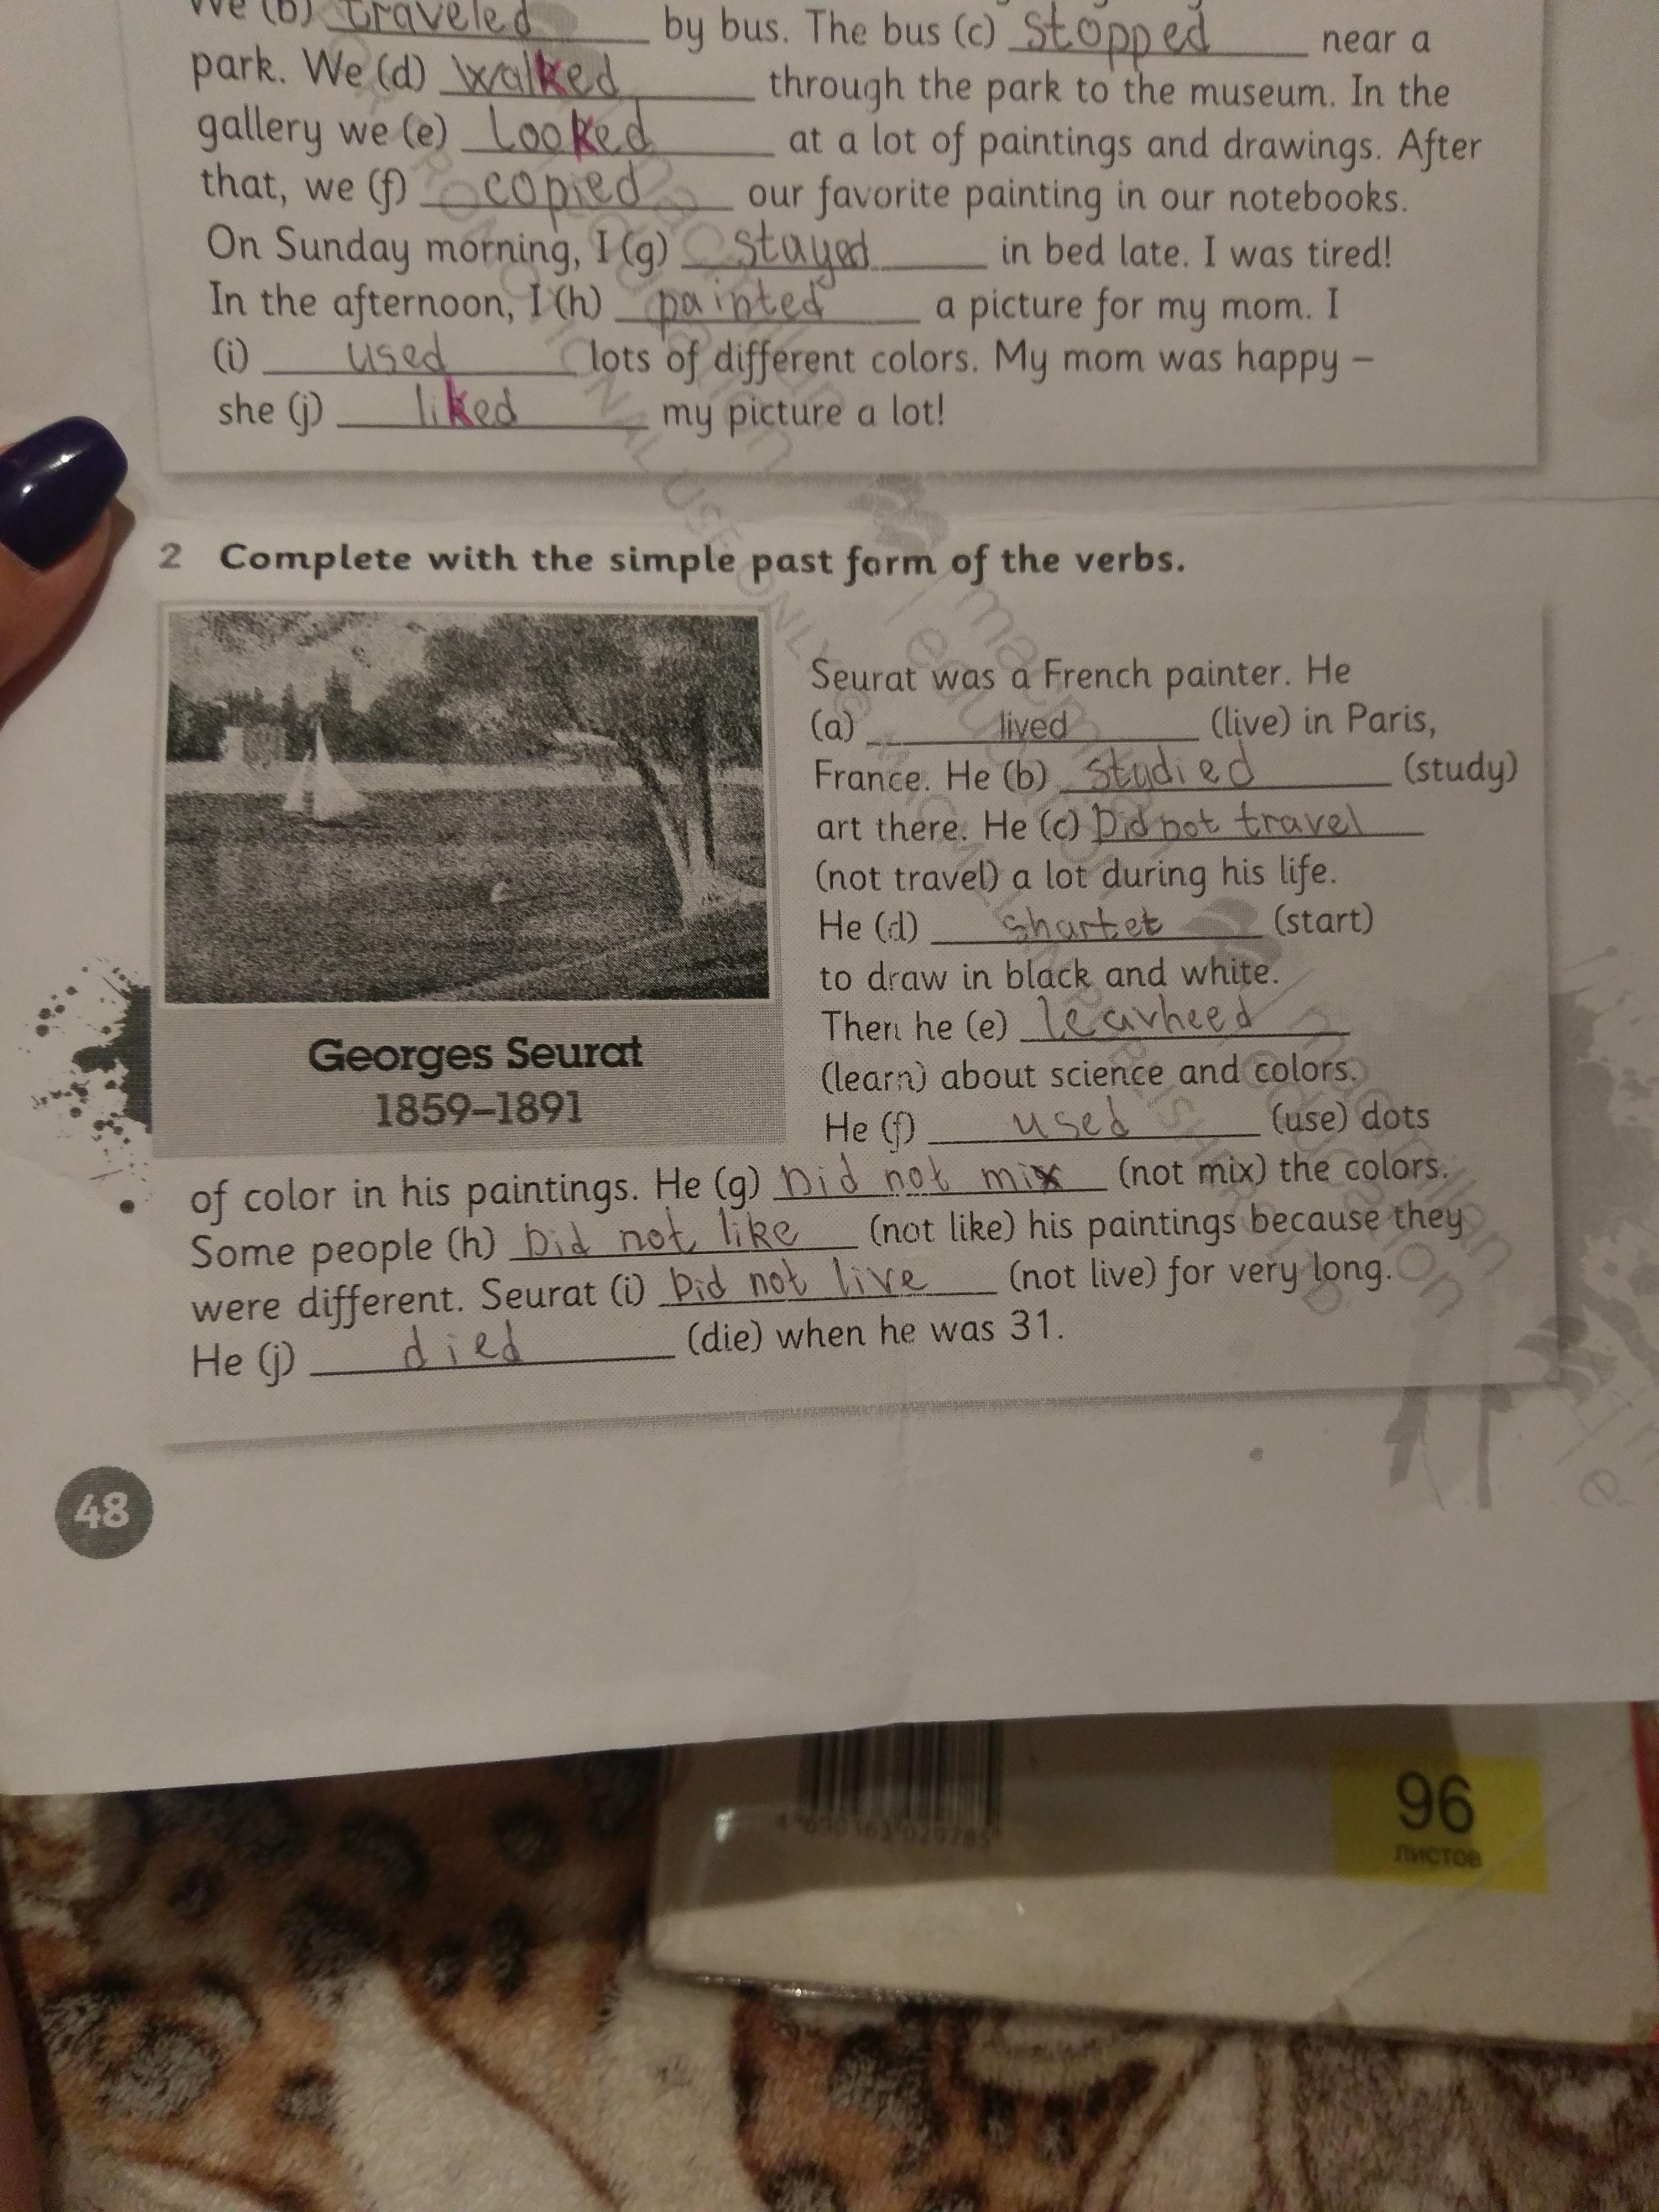 We (b) traveled by bus. The bus (c) stopped near a
park. We (d) walked through the park to the museum. In the
gallery we (e) looked at a lot of paintings and drawings. After
that, we (f) copied our favorite painting in our notebooks.
On Sunday morning, I (g) stayed in bed late. I was tired!
In the afternoon, I (h) painted a picture for my mom. I
(i) used lots of different colors. My mom was happy –
she (j) liked my picture a lot!
2 Complete with the simple past form of the verbs.
Seurat was a French painter. He
(a) lived (live) in Paris,
France. He (b) studied (study)
art there. He (c) Did not travel
(not travel) a lot during his life.
He (d) shartet (start)
to draw in black and white.
Then he (e) learheed
(learn) about science and colors.
He (f) used (use) dots
of color in his paintings. He (g) Did not mix (not mix) the colors.
Some people (h) Did not like (not like) his paintings because they
were different. Seurat (i) Did not live (not live) for very long.
He (j) died (die) when he was 31.
Georges Seurat
1859–1891
48
96
ЛИСТОВ